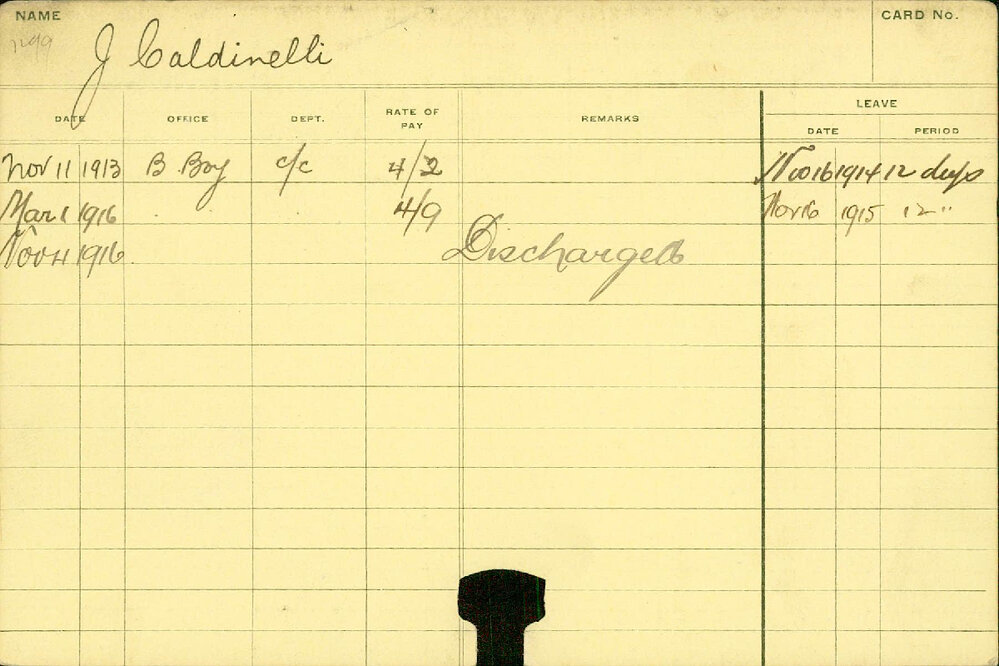 NAME
CARD No.
1299
J Caldinelli
DATE OFFICE DEPT. RATE OF PAY REMARKS LEAVE
DATE PERIOD
Nov 11 1913 B. Boy c/c 4/2 Nov 16 1914 12 days
Mar 1 1916 . . 4/9 Nov 16 1915 12 "
Nov 11 1916 Discharged